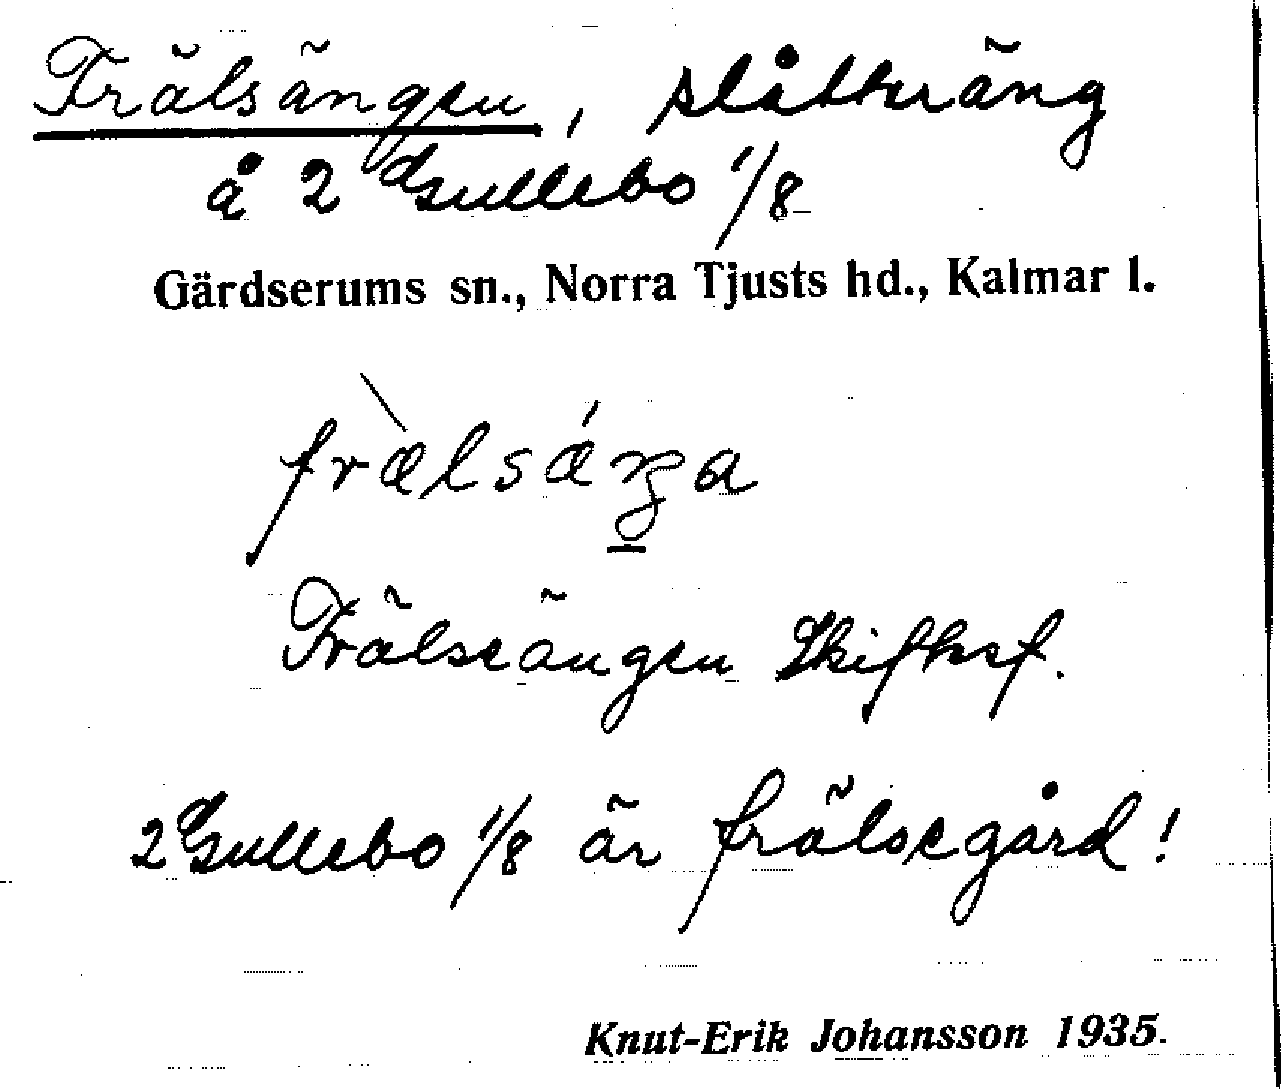 Frälsängen, slåtteräng
å 2 Gullebo 1/8
Gärdserums sn., Norra Tjusts hd., Kalmar l.
fræ̀lsǽŋa
Frälseängen Skifksf.
2 Gullebo 1/8 är frälsegård!
Knut-Erik Johansson 1935.